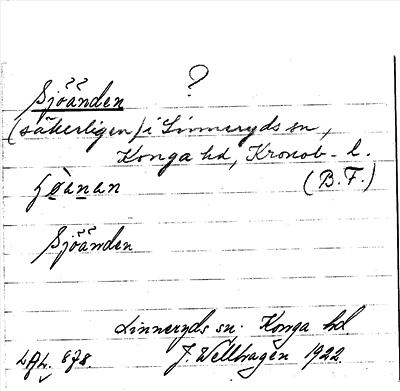 ?
Sjöänden
(säkerligen) i Linneryds sn,
Konga hd, Kronob. l.
(B.F.)
Sjöänden
Linneryds sn. Konga hd
LAL. 678. J. Wellhagen 1922.